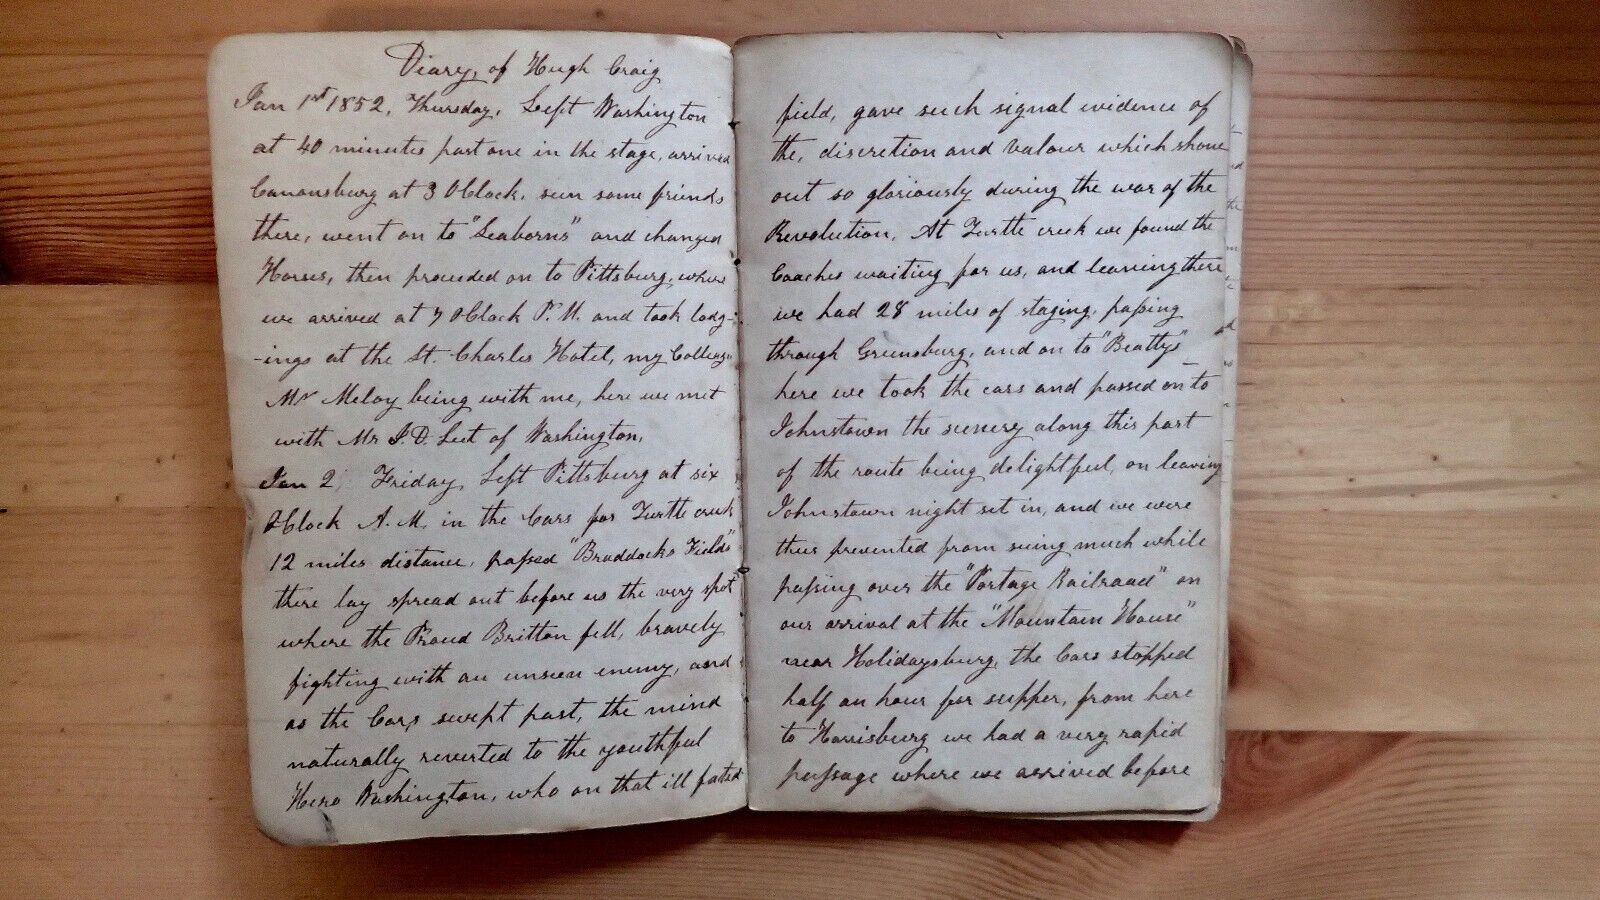 Diary, of Hugh Craig
Jan 1st 1852, Thursday, Left Washington
at 40 minutes past one in the stage, arrived
Canonsburg at 3 OClock, seen some friends
there, went on to "Seaborns" and changed
Horses, then proceeded on to Pittsburg, where
we arrived at 7 OClock P. M. and took lodg-
-ings at the St Charles Hotel, my Colleague
Mr Meloy being with me, here we met
with Mr I. D. Leet of Washington,
Jan 2 Friday, Left Pittsburg at six
OClock A. M. in the Cars for Turtle creek
12 miles distance, passed "Braddocks Fields"
there lay spread out before us the very spot
where the Proud Britton fell, bravely
fighting with an unseen enemy, and
as the Cars swept past, the mind
naturally reverted to the youthful
Hero Washington, who on that ill fated
field, gave such signal evidence of
the, discretion and Valour which shone
out so gloriously during the war of the
Revolution, At Turtle creek we found the
Coaches waiting for us, and leaving there
we had 28 miles of staging, passing
through Greensburg, and on to "Beattys"
here we took the cars and passed on to
Johnstown the scenery along this part
of the route being delightful, on leaving
Johnstown night set in, and we were
thus prevented from seeing much while
passing over the "Portage Railroad" on
our arrival at the "Mountain House"
near Holidaysburg, the Cars stopped
half an hour for supper, from here
to Harrisburg we had a very rapid
passage where we arrived before